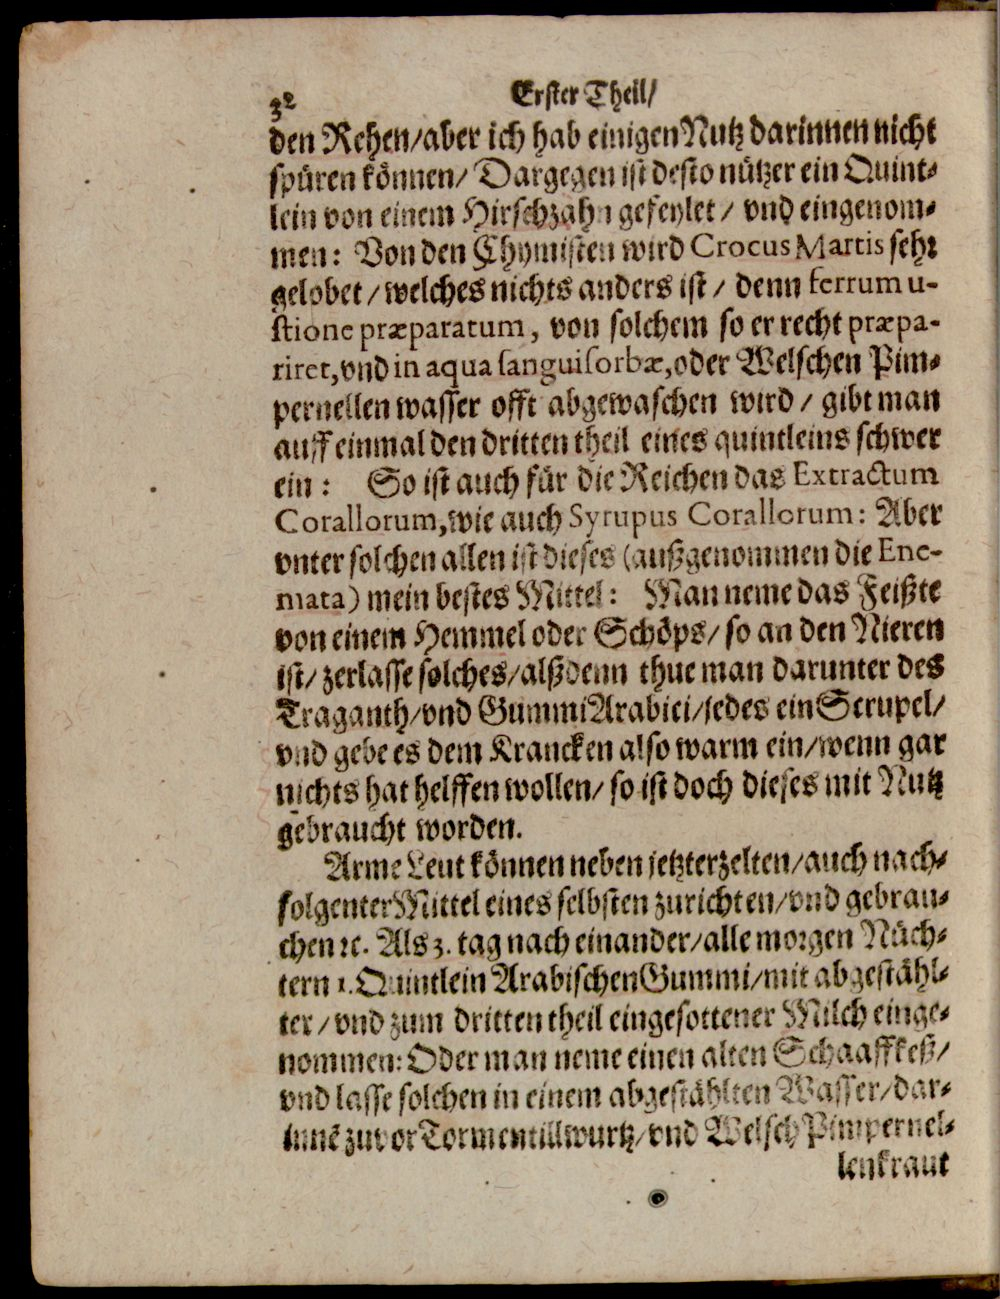 32 Erster Theil/
den Rehen/aber ich hab einigen Nutz darinnen nicht
spüren können/ Dargegen ist desto nützer ein Quint-
lein von einem Hirschzahn gefeylet / vnd eingenom-
men: Von den Chymisten wird Crocus Martis sehr
gelobet / welches nichts anders ist / denn ferrum u-
stione præparatum, von solchem so er recht præpa-
riret, vnd in aqua sanguisorbæ, oder Welschen Pim-
pernellen wasser offt abgewaschen wird / gibt man
auff einmal den dritten theil eines quintleins schwer
ein: So ist auch für die Reichen das Extractum
Corallorum, wie auch Syrupus Corallorum: Aber
vnter solchen allen ist dieses (außgenommen die Ene-
mata) mein bestes Mittel: Man neme das Feißte
von einem Hemmel oder Schöps/ so an den Nieren
ist/ zerlasse solches/alßdenn thue man darunter des
Traganth/vnd Gummi Arabici/jedes ein Scrupel/
vnd gebe es dem Krancken also warm ein/wenn gar
nichts hat helffen wollen/ so ist doch dieses mit Nutz
gebraucht worden.
Arme Leut können neben jetzterzelten/auch nach-
folgenter Mittel eines selbsten zurichten/vnd gebrau-
chen ꝛc. Als 3. tag nach einander/alle morgen Nüch-
tern 1. Quintlein Arabischen Gummi/mit abgestähl-
ter / vnd zum dritten theil eingesottener Milch einge-
nommen: Oder man neme einen alten Schaaffkeß/
vnd lasse solchen in einem abgestählten Wasser/dar-
innē zuvor Tormentillwurtz/vnd Welsch Pimpernel-
lenkraut